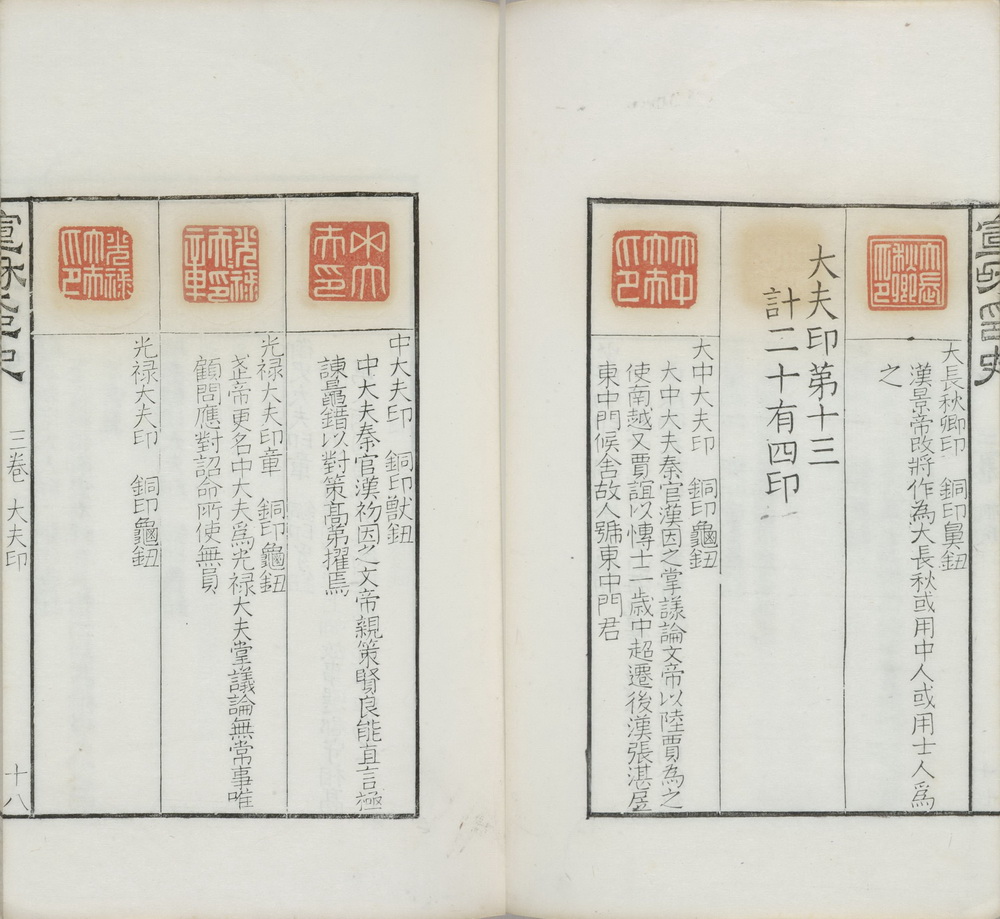 大長秋卿印
大長秋卿印　銅印鼻鈕
漢景帝改將作為大長秋或用中人或用士人爲
之
大夫印第十三
計二十有四印
大中大夫印
大中大夫印　銅印龜鈕
大中大夫秦官漢因之掌議論文帝以陸賈為之
使南越又賈誼以博士一歲中超遷後漢張湛居
東中門候舍故人號東中門君
中大夫印
中大夫印　銅印獸鈕
中大夫秦官漢初因之文帝親策賢良能直言極
諫鼂錯以對策高第擢焉
光禄大夫印章
光禄大夫印章　銅印龜鈕
武帝更名中大夫爲光禄大夫掌議論無常事唯
顧問應對詔命所使無員
光禄大夫印
光禄大夫印　銅印龜鈕
三卷　大夫印
十八